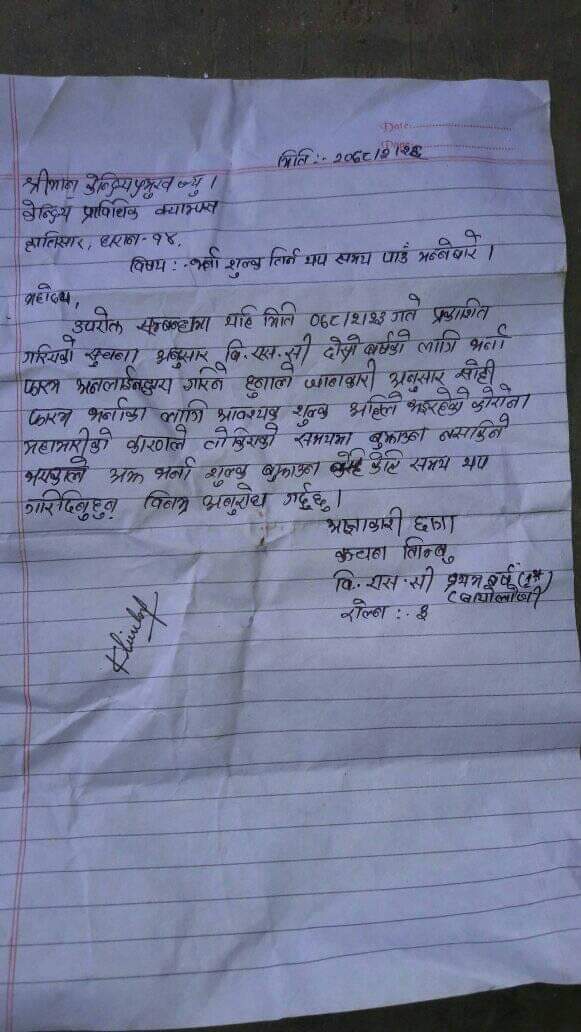 Date:
Date:
मिति :- २०७८/२/२६
श्रीमान् केन्द्रिय प्रमुख ज्यु ।
केन्द्रिय प्राविधिक क्याम्पस
हात्तिसार, धरान-१४,
विषय :- भर्ना शुल्क तिर्न थप समय पाउँ भन्नेबारे ।
महोदय,
उपरोक्त सम्बन्धमा यहि मिति गते प्रकाशित
गरिएको सुचना अनुसार वि. एस. सी दोस्रो बर्षको लागि भर्ना
फारम अनलाईनद्वारा गरिने हुनाले जानकारी अनुसार सोही
फारम भर्नाका लागि आवश्यक शुल्क अहिले भईरहेको कोरोना
महामारीको कारणले लकडाउनको समयमा बुझाउन नसकिने
भएकाले अझ भर्ना शुल्क बुझाउन केहि समय थप
गरिदिनुहुन विनम्र अनुरोध गर्दछु ।
आज्ञाकारी छात्रा
कञ्चन लिम्बु
वि. एस. सी प्रथम वर्ष (1st)
(बायोलोजी)
रोल नं :- ३